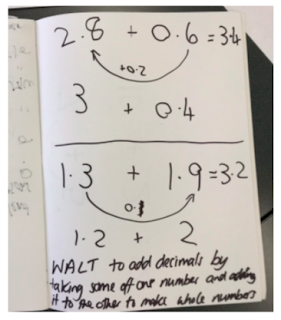 2.8 + 0.6 = 3.4
+0.2
3 + 0.4
1.3 + 1.9 = 3.2
0.1
1.2 + 2
WALT to add decimals by
taking some off one number and adding
it to the other to make whole numbers